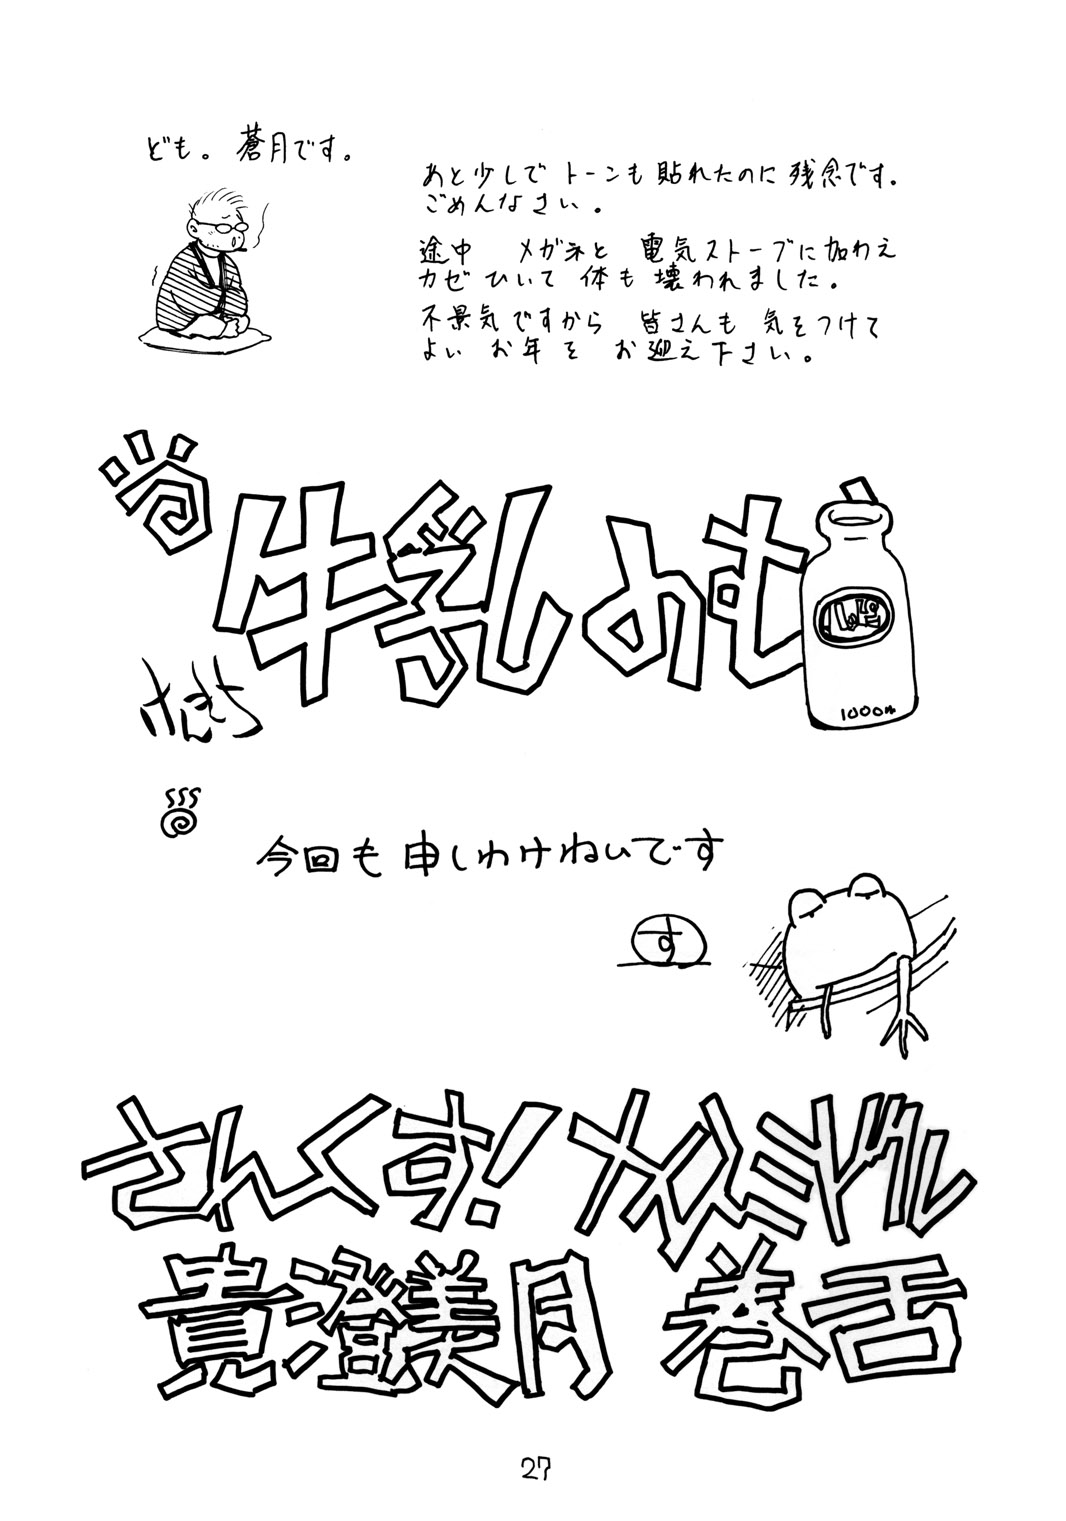 ども。蒼月です。
あと少しでトーンも貼れたのに残念です。
ごめんなさい。
途中 メガネと 電気ストーブに加わえ
カゼひいて体も壊われました。
不景気ですから 皆さんも 気をつけて
よい お年を お迎え下さい。
牛乳のむ
1000
けんきち
今回も申しわけねいです
す
さんくす! ナイスミドル
貴澄美月 巻舌
27